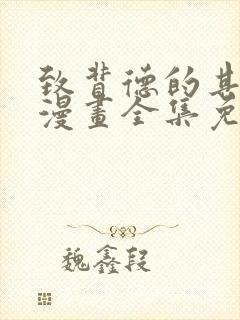 致背德的其
漫畫全集免
魏鑫段